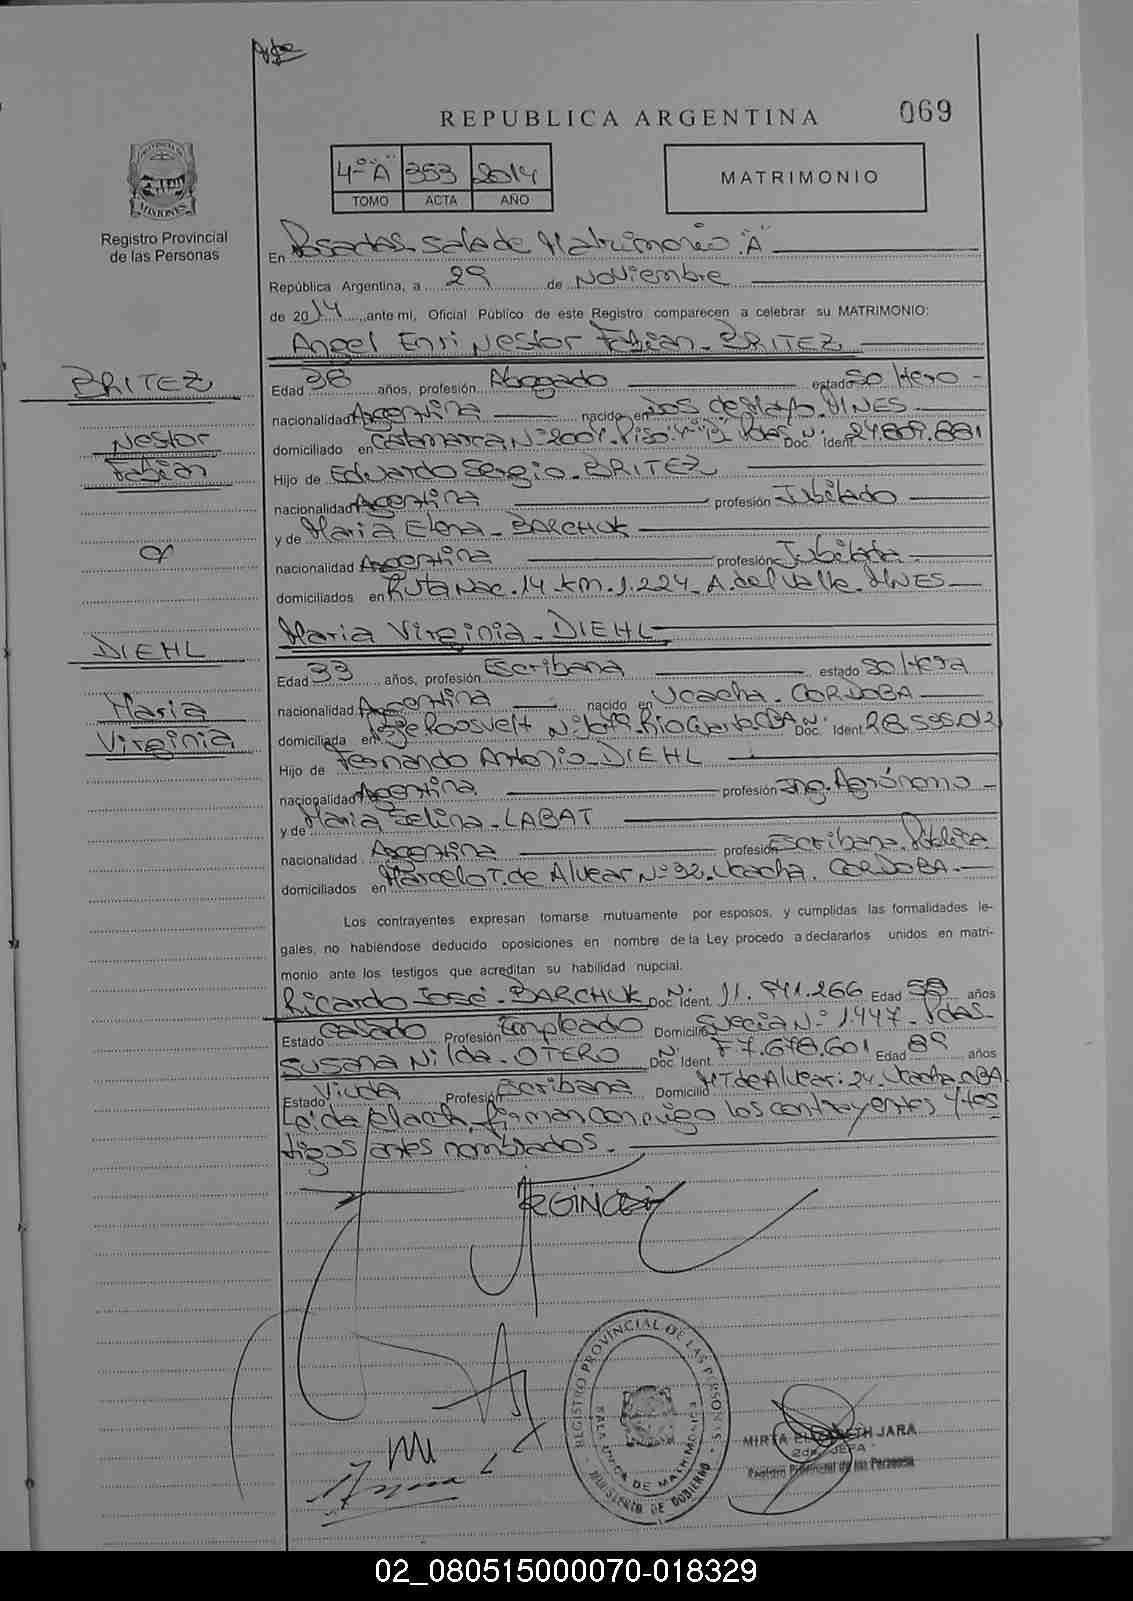 REPUBLICA ARGENTINA 069
4º "A" 353 2014
TOMO ACTA AÑO
MATRIMONIO
PROVINCIA DE MISIONES
Registro Provincial
de las Personas
En Posadas sala de Matrimonio "A"
República Argentina, a 29 de Noviembre
de 2014, ante mí, Oficial Público de este Registro comparecen a celebrar su MATRIMONIO:
Angel Enri Nestor Fabian - BRITEZ
BRITEZ
Nestor
Fabian
Edad 38 años, profesión Abogado estado soltero
nacionalidad Argentina nacido en MNES
domiciliado en Catamarca Nº 2001. Piso: Pdas Doc. Ident. Nº 24.809.881
Hijo de Eduardo Sergio - BRITEZ
nacionalidad Argentina profesión Jubilado
y de Maria Elena - BARCHUK
nacionalidad Argentina profesión Jubilada
domiciliados en Ruta Nac. 14 km. 1.224 A. del Valle MNES
Maria Virginia - DIEHL
DIEHL
Maria
Virginia
Edad 33 años, profesión Escribana estado soltera
nacionalidad Argentina nacido en Ucacha - CORDOBA
domiciliada en Roosvelt Nº Rio Cuarto CBA Doc. Ident. Nº 28.
Hijo de Fernando Antonio - DIEHL
nacionalidad Argentina profesión Ing. Agrónomo
y de Maria Selina - LABAT
nacionalidad Argentina profesión Escribana Pública
domiciliados en Marcelo T. de Alvear Nº 32 - Ucacha. CORDOBA.
Los contrayentes expresan tomarse mutuamente por esposos, y cumplidas las formalidades le-
gales, no habiéndose deducido oposiciones en nombre de la Ley procedo a declararlos unidos en matri-
monio ante los testigos que acreditan su habilidad nupcial.
Ricardo José - BARCHUK Doc. Ident. Nº 11.941.266 Edad 58 años
Estado casado Profesión Empleado Domicilio Suecia Nº 1.447 - Pdas.
Susana Nilda - OTERO Doc. Ident. Nº F7.678.601 Edad años
Estado Viuda Profesión Escribana Domicilio MT de Alvear. 24. Ucacha CBA
Leida el acta, firman conmigo los contrayentes y tes
tigos antes nombrados.
REGISTRO PROVINCIAL DE LAS PERSONAS
SALA UNICA DE MATRIMONIOS
MINISTERIO DE GOBIERNO
MIRTA ELIZABETH JARA
2da. JEFA
Registro Provincial de las Personas
02_080515000070-018329